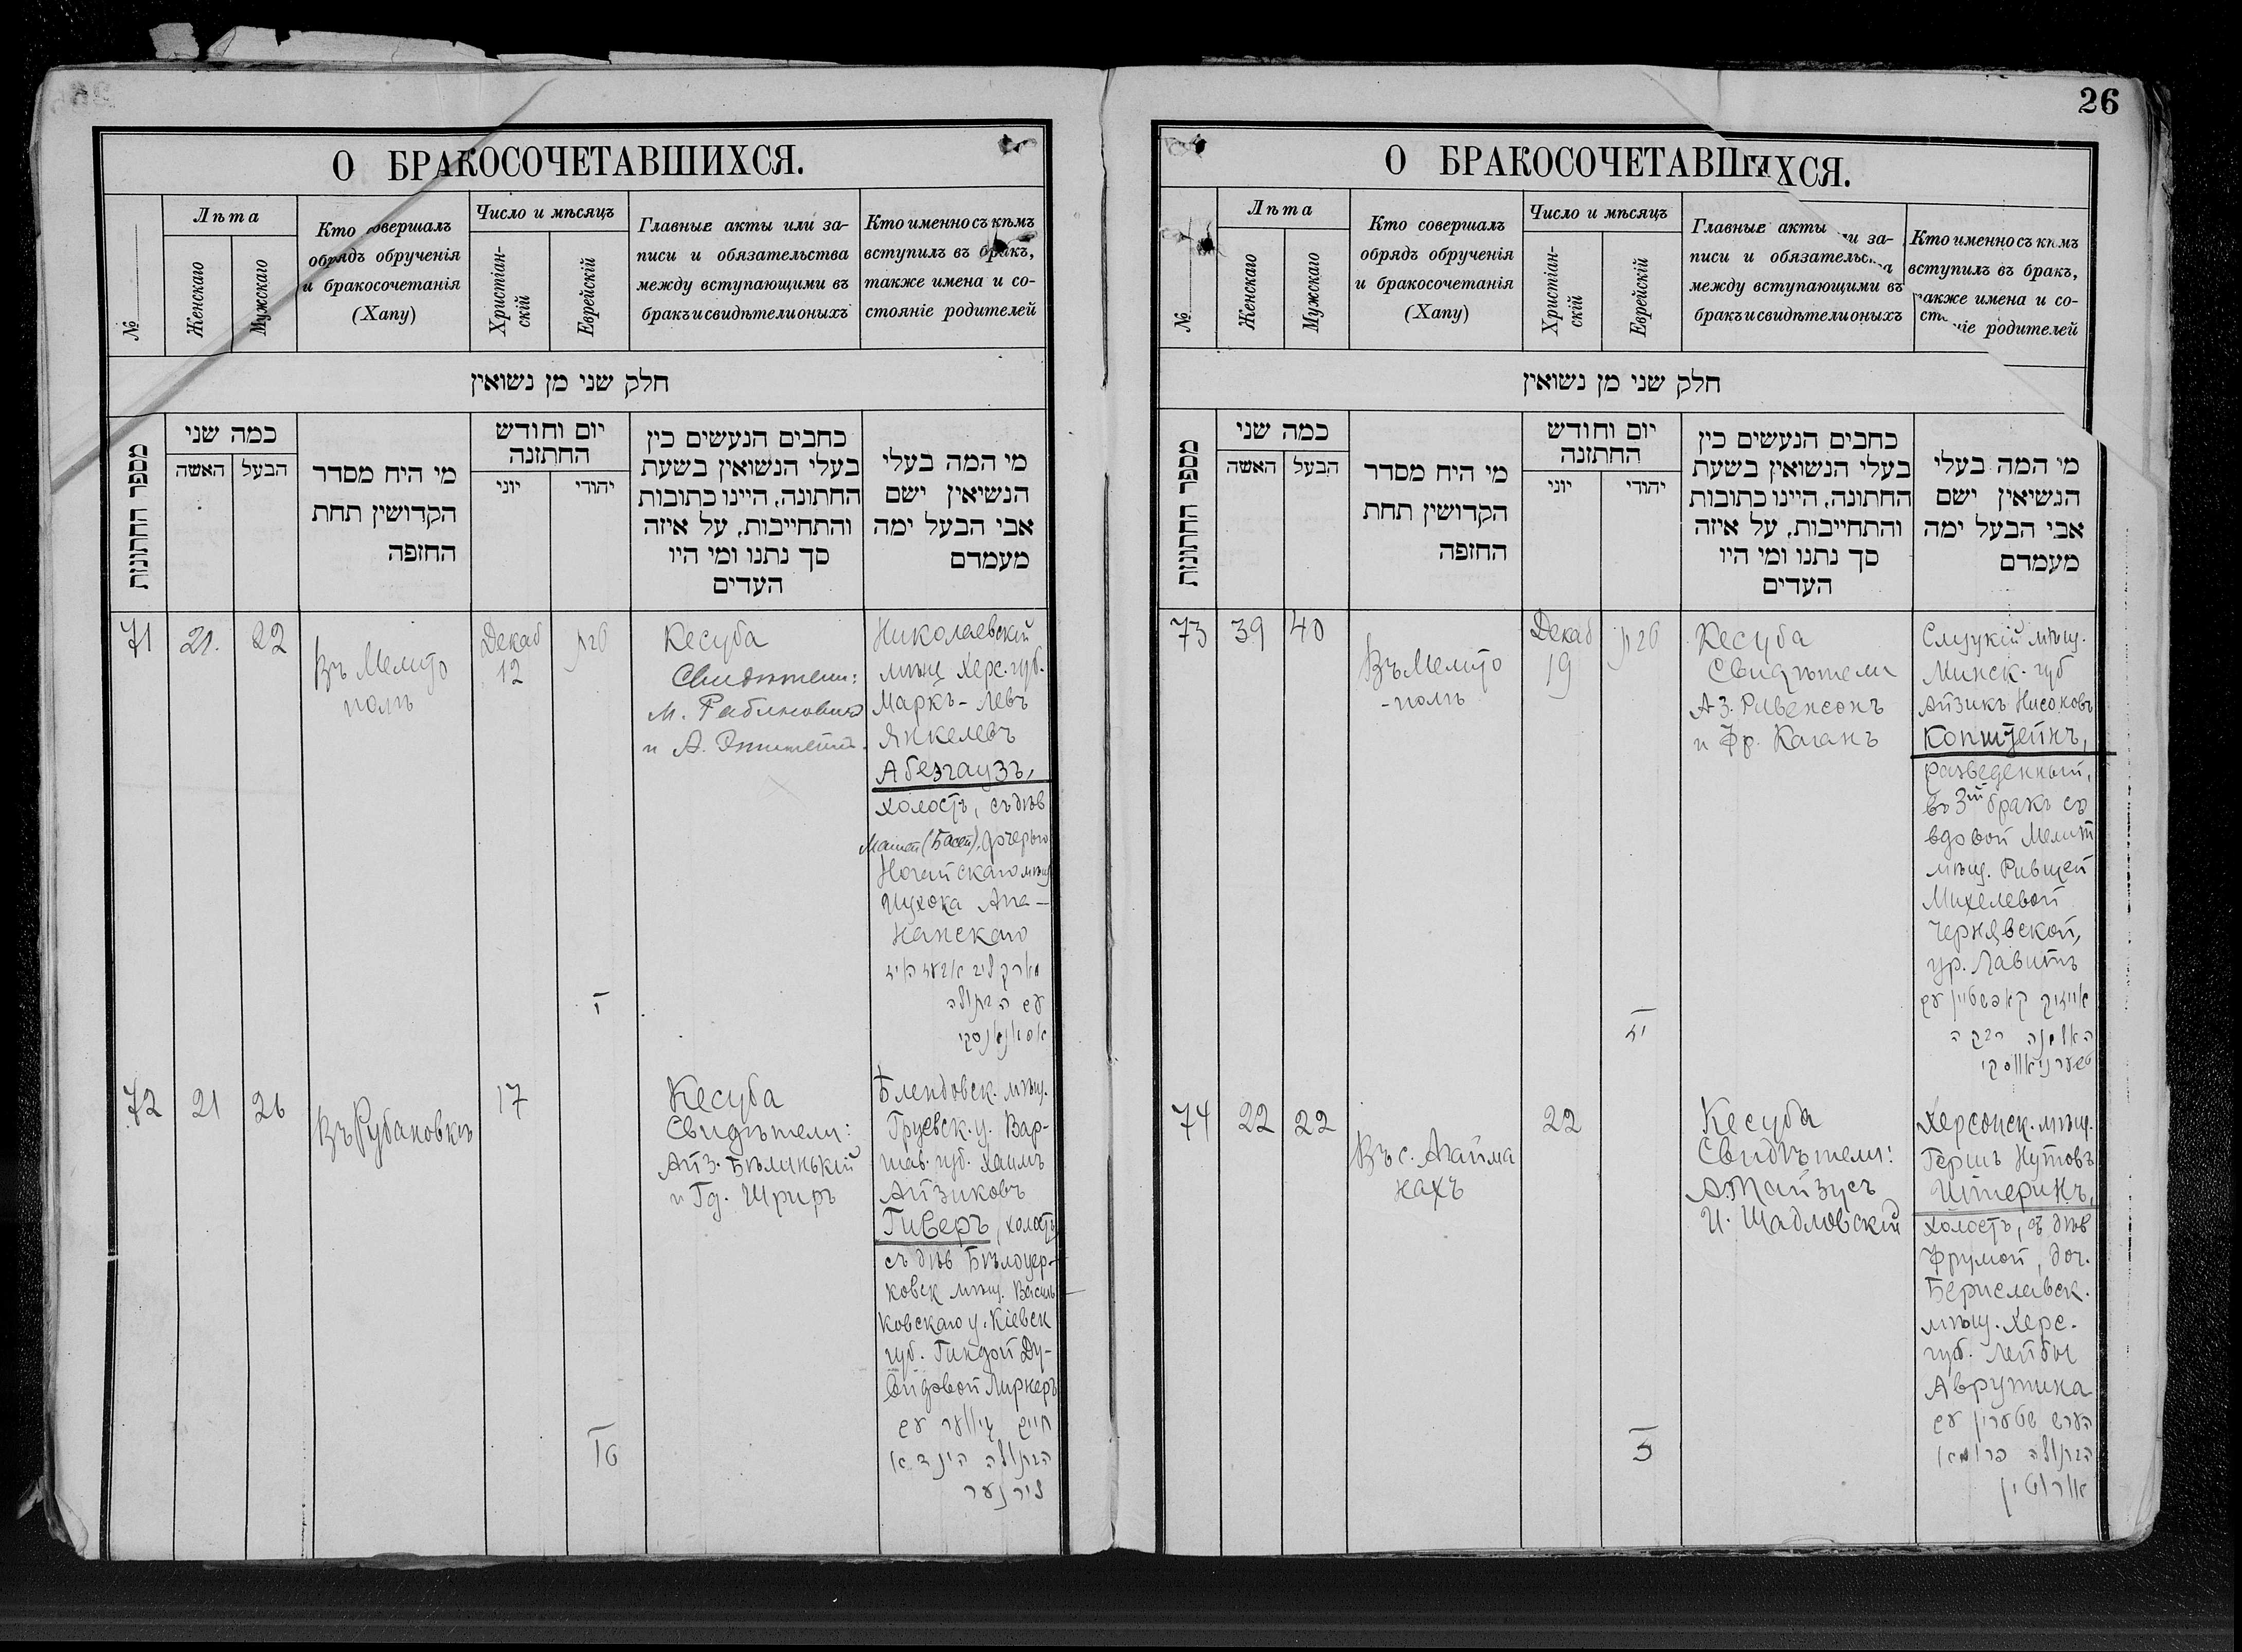 26
О БРАКОСОЧЕТАВШИХСЯ.
№
Лѣта
Женскаго
Мужскаго
Кто совершалъ
обрядъ обрученія
и бракосочетанія
(Хапу)
Число и мѣсяцъ
Христіан-
скій
Еврейскій
Главные акты или за-
писи и обязательства
между вступающими въ
бракъ и свидѣтели оныхъ
Кто именно съ кѣмъ
вступилъ въ бракъ,
также имена и со-
стояніе родителей
חלק שני מן נשואין
מספר החתונות
כמה שני
האשה
הבעל
מי היח מסדר
הקדושין תחת
החופה
יום וחודש
החתונה
יוני
יהודי
כתבים הנעשים כין
בעלי הנשואין בשעת
החתונה, היינו כתובות
והתחייבות, על איזה
סך נתנו ומי היו
העדים
מי המה בעלי
הנשיאין ישם
אבי הבעל ימה
מעמדם
71
21.
22
Въ Мелито
полѣ
Декаб
12
י
Кесуба
Свидѣтели:
М. Рабиновичъ
и А.
Николаевскій
мѣщ Херс. губ.
Маркъ-Левъ
Янкелевъ
Абезгаузъ,
холостъ, съ дѣв
Машей (Басей), дочерью
Ногайскаго мѣщ
Ицхока Ана-
нанскаго
עם הבתולה
72
21
26
Въ Рубановкѣ
17
טו
Кесуба
Свидѣтели:
Айз. Бѣлинькій
и Гд. Шриръ
Блендовск. мѣщ.
Груевск. у. Вар-
шав. губ. Хаимъ
Айзиковъ
Гиверъ, холостъ
съ дѣв Бѣлоцер-
ковск мѣщ. Василь
ковскаго у. Кіевск
губ. Гиндой Ду-
видовой Лирнеръ
חיים גיווער עם
הבתולה הינדא
לירנער
О БРАКОСОЧЕТАВШИХСЯ.
№
Лѣта
Женскаго
Мужскаго
Кто совершалъ
обрядъ обрученія
и бракосочетанія
(Хапу)
Число и мѣсяцъ
Христіан-
скій
Еврейскій
Главные акты или за-
писи и обязательства
между вступающими въ
бракъ и свидѣтели оныхъ
Кто именно съ кѣмъ
вступилъ въ бракъ,
также имена и со-
стояніе родителей
חלק שני מן נשואין
מספר החתונות
כמה שני
האשה
הבעל
מי היח מסדר
הקדושין תחת
החופה
יום וחודש
החתונה
יוני
יהודי
כתבים הנעשים כין
בעלי הנשואין בשעת
החתונה, היינו כתובות
והתחייבות, על איזה
סך נתנו ומי היו
העדים
מי המה בעלי
הנשיאין ישם
אבי הבעל ימה
מעמדם
73
39
40
Въ Мелито
-полѣ
Декаб
19
יז
Кесуба
Свидѣтели
Аз. Ривенсонъ
и Фр. Каганъ
Слуцкій мѣщ.
Минск. губ
Айзикъ Нисоновъ
Копштейнъ,
разведенный,
въ 3ій бракъ съ
вдовой Мелит
мѣщ. Рившей
Михелевой
Чернявской,
ур. Лавитъ
אייזיק קאפשטיין עם
האלמנה רבקה
טשערניאווסקי
74
22
22
Въ с. Агайма
нахъ
22
Кесуба
Свидѣтели:
А. Майзусъ
И. Шадловскій
Херсонск. мѣщ.
Гершъ Нутовъ
Штеринъ,
холостъ, съ дѣв
Фрумой, доч.
Бериславск.
мѣщ. Херс.
губ. Лейбы
Аврутина
הערש שטערין עם
הבתולה פרומא
אוורוטין